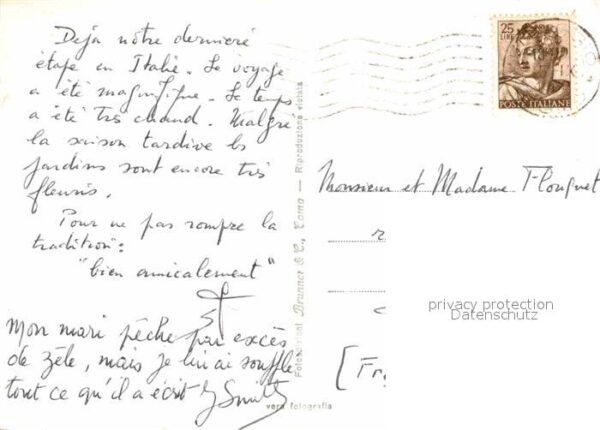 Déjà nôtre dernière
étape en Italie. Le voyage
a été magnifique. Le temps
a été très chaud. Malgré
la saison tardive les
jardins sont encore très
fleuris.
Pour ne pas rompre la
tradition:
"bien amicalement"
Mon mari pêche par excès
de zèle, mais je lui ai soufflé
tout ce qu'il a écrit
Fotoedizioni Brunner & C., Como — Riproduzione vietata
vera fotografia
25
LIRE
POSTE ITALIANE
Monsieur et Madame Flouquet
privacy protection
Datenschutz
[Fr